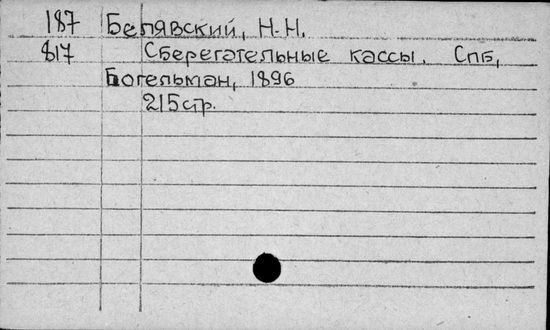 187 Белявский, Н.Н.
817 Сберегательные кассы. Спб,
Богельман, 1896
215стр.